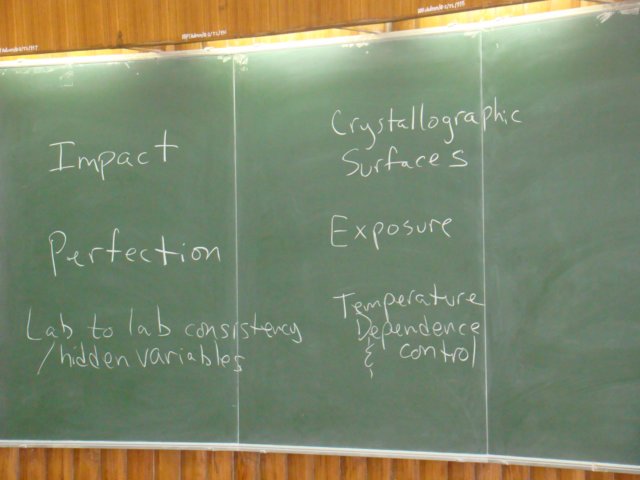 Impact
Perfection
Lab to lab consistency
/hidden variables
Crystallographic
Surfaces
Exposure
Temperature
Dependence
& control